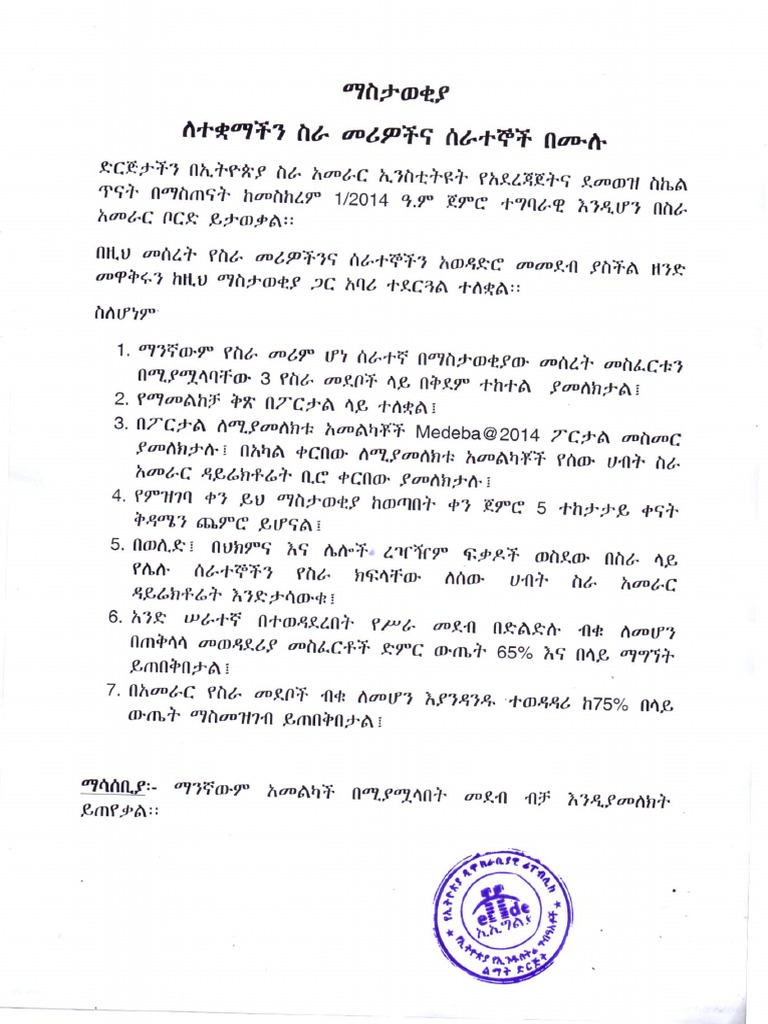 ማስታወቂያ
ለተቋማችን ስራ መሪዎችና ሰራተኞች በሙሉ
ድርጅታችን በኢትዮጵያ ስራ አመራር ኢንስቲትዩት የአደረጃጀትና ደመወዝ ስኬል
ጥናት በማስጠናት ከመስከረም 1/2014 ዓ.ም ጀምሮ ተግባራዊ እንዲሆን በስራ
አመራር ቦርድ ይታወቃል፡፡
በዚህ መሰረት የስራ መሪዎችንና ሰራተኞችን አወዳድሮ መመደብ ያስችል ዘንድ
መዋቅሩን ከዚህ ማስታወቂያ ጋር አባሪ ተደርጓል ተለቋል፡፡
ስለሆነም
1. ማንኛውም የስራ መሪም ሆነ ሰራተኛ በማስታወቂያው መሰረት መስፈርቱን
በሚያሟላባቸው 3 የስራ መደቦች ላይ በቅደም ተከተል ያመለክታል፤
2. የማመልከቻ ቅጽ በፖርታል ላይ ተለቋል፤
3. በፖርታል ለሚያመለክቱ አመልካቾች Medeba@2014 ፖርታል መስመር
ያመለክታሉ፤ በአካል ቀርበው ለሚያመለክቱ አመልካቾች የሰው ሀብት ስራ
አመራር ዳይሬክቶሬት ቢሮ ቀርበው ያመለክታሉ፤
4. የምዝገባ ቀን ይህ ማስታወቂያ ከወጣበት ቀን ጀምሮ 5 ተከታታይ ቀናት
ቅዳሜን ጨምሮ ይሆናል፤
5. በወሊድ፤ በህክምና እና ሌሎች ረዣዥም ፍቃዶች ወስደው በስራ ላይ
የሌሉ ሰራተኞችን የስራ ክፍላቸው ለሰው ሀብት ስራ አመራር
ዳይሬክቶሬት እንድታሳውቁ፤
6. አንድ ሠራተኛ በተወዳደረበት የሥራ መደብ በድልድሉ ብቁ ለመሆን
በጠቅላላ መወዳደሪያ መስፈርቶች ድምር ውጤት 65% እና በላይ ማግኘት
ይጠበቅበታል፤
7. በአመራር የስራ መደቦች ብቁ ለመሆን እያንዳንዱ ተወዳዳሪ ከ75% በላይ
ውጤት ማስመዝገብ ይጠበቅበታል፤
ማሳሰቢያ፡- ማንኛውም አመልካች በሚያሟላበት መደብ ብቻ እንዲያመለክት
ይጠየቃል፡፡
የኢትዮጵያ ዲሞክራሲያዊ ሪፐብሊክ
eiide
ኢኢግልድ
የኢትዮጵያ የኢንዱስትሪ ግብዓቶች
ልማት ድርጅት